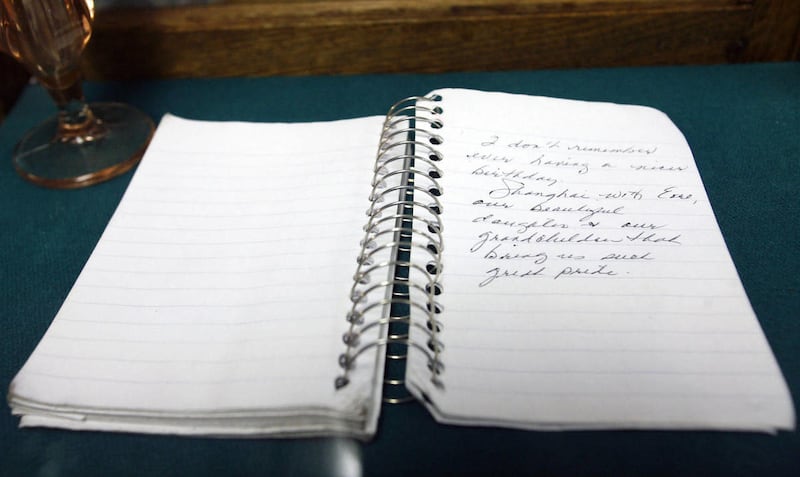 I don't remember
ever having a nicer
birthday.
Shanghai with
our beautiful
daughter & our
grandchildren that
bring us such
great pride.